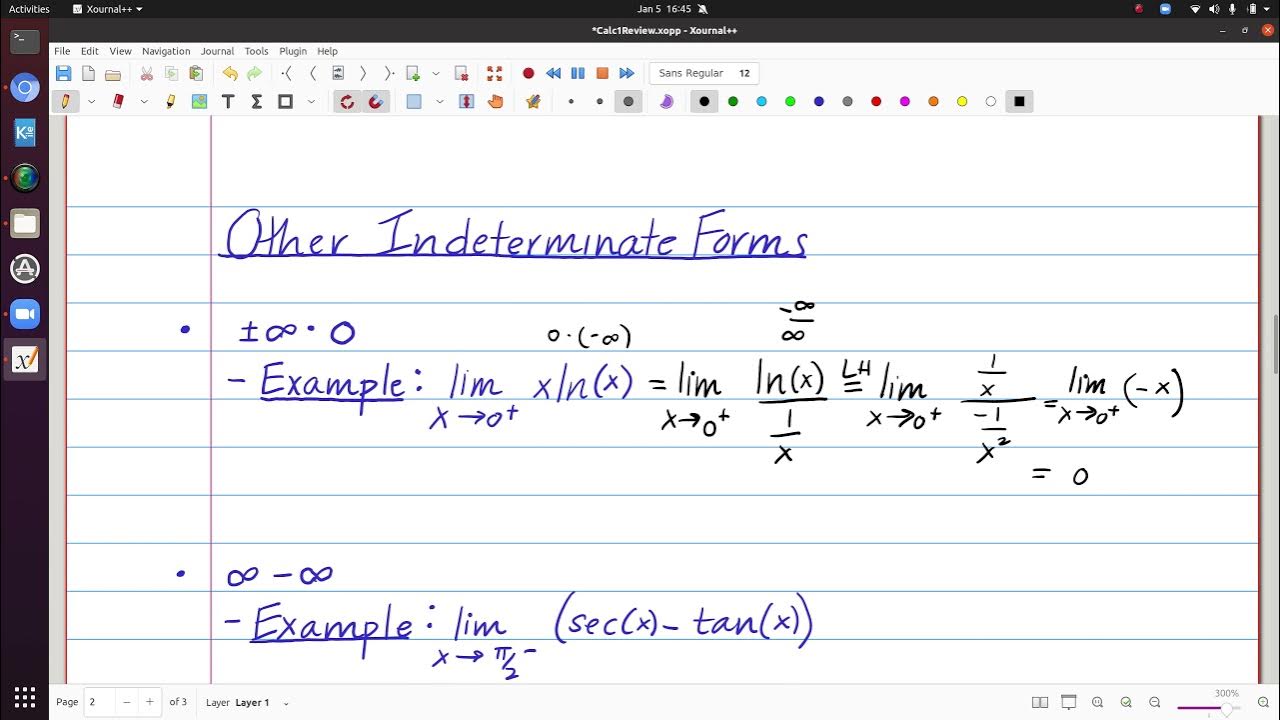 Activities Xournal++ Jan 5 16:45
*Calc1Review.xopp - Xournal++
File Edit View Navigation Journal Tools Plugin Help
Sans Regular 12
Other Indeterminate Forms
• ±∞·0
0·(-∞)
-∞/∞
- Example: lim x→0⁺ xln(x) = lim x→0⁺ ln(x)/(1/x) LH= lim x→0⁺ (1/x)/(-1/x²) = lim x→0⁺ (-x)
= 0
• ∞-∞
- Example: lim x→π/2⁻ (sec(x)- tan(x))
Page 2 of 3 Layer Layer 1 300%